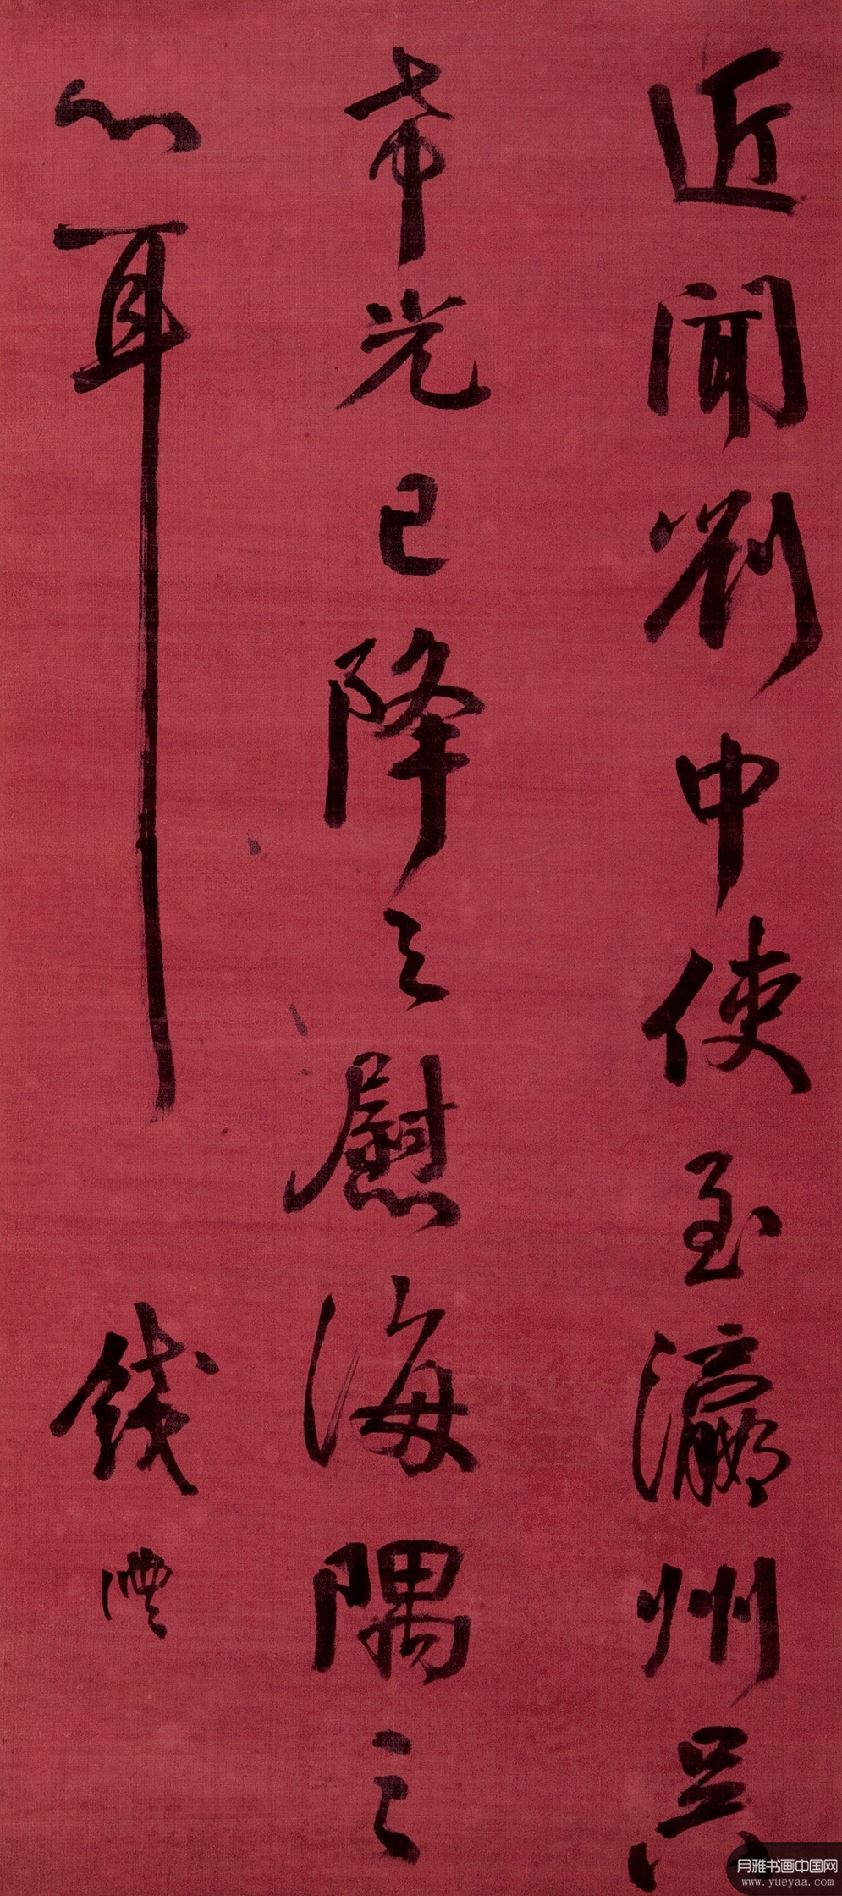 近聞劉中使至瀛州吳
希光已降足慰海隅之
心耳
錢灃
月雅书画中国网
www.yueyaa.com